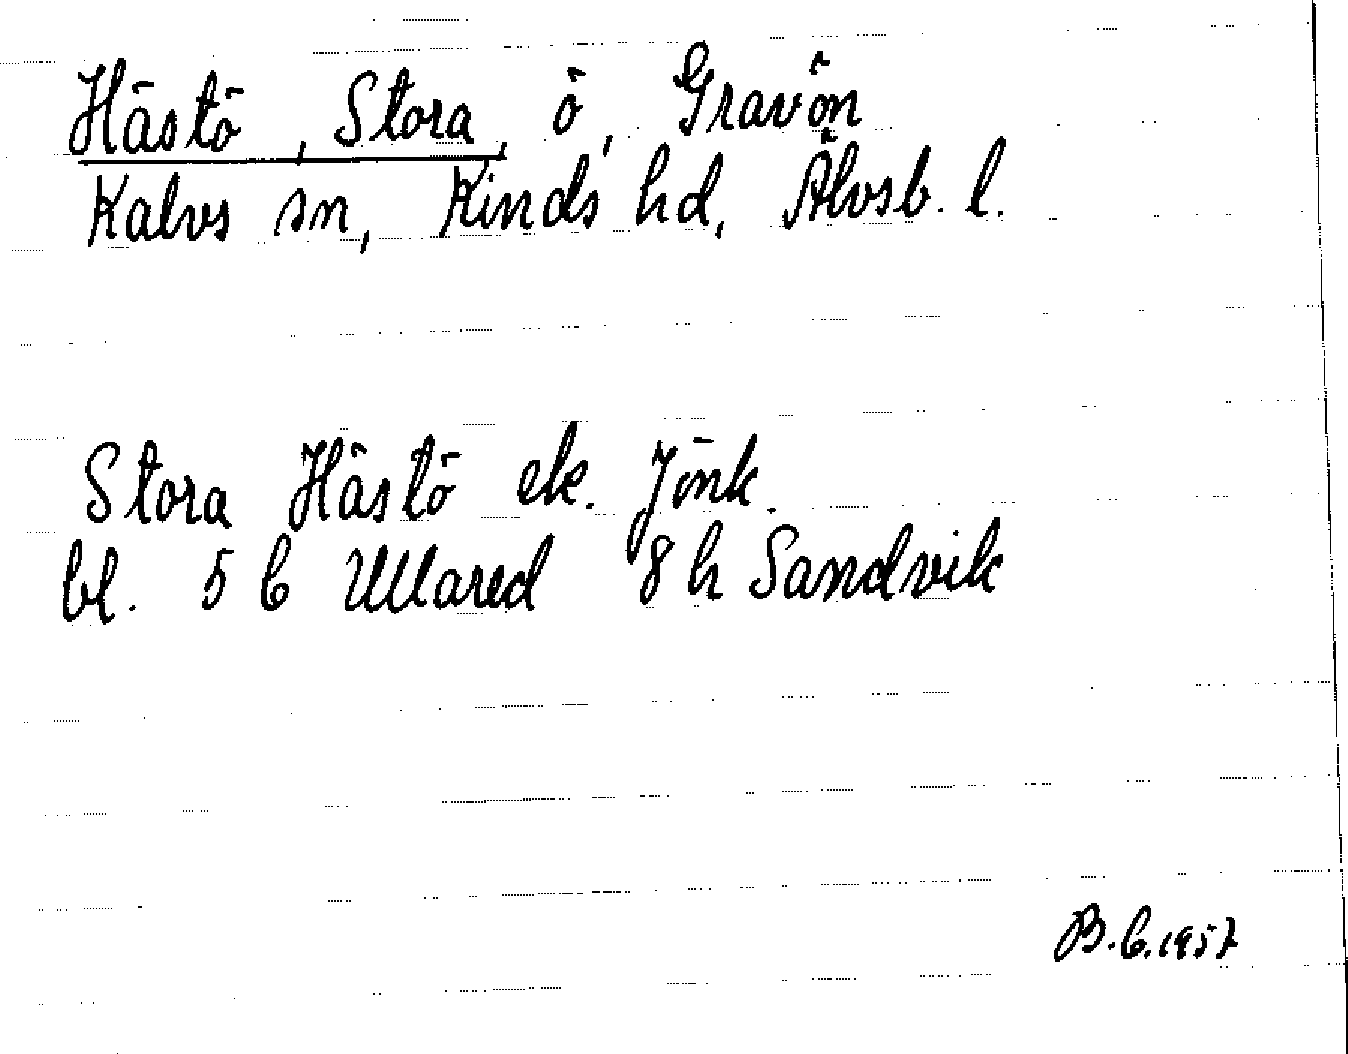 Hästö, Stora, ö, Gravön
Kalvs sn, Kinds hd, Älvsb. l.
Stora Hästö ek. Jönk.
bl. 5 C Ullared 8 h Sandvik
B.C. 1957